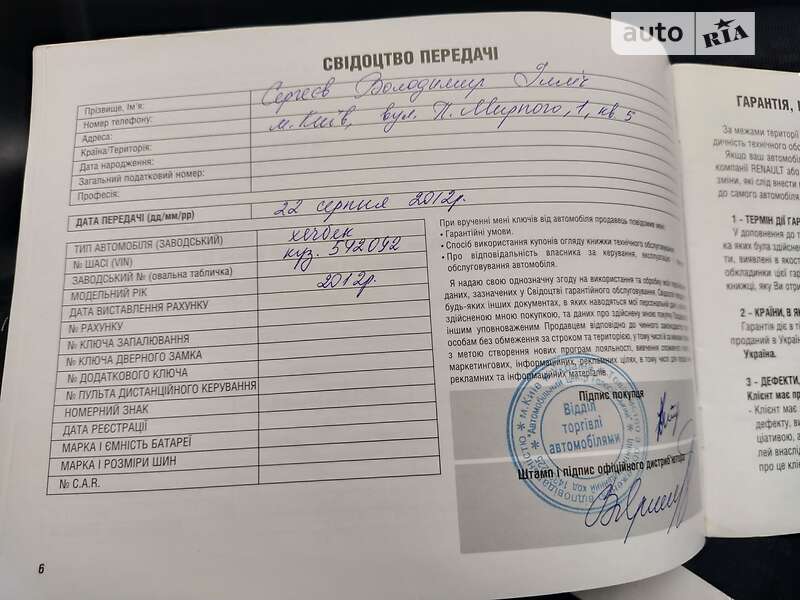 auto RIA
СВІДОЦТВО ПЕРЕДАЧІ
Прізвище, Ім'я: Сергеєв Володимир Ілліч
Номер телефону:
Адреса: м. Київ, вул. П. Мирного, 1, кв 5
Країна/Територія:
Дата народження:
Загальний податковий номер:
Професія:
ДАТА ПЕРЕДАЧІ (дд/мм/рр) 22 серпня 2012р.
ТИП АВТОМОБІЛЯ (ЗАВОДСЬКИЙ) хечбек
№ ШАСІ (VIN) куз. 542092
ЗАВОДСЬКИЙ № (овальна табличка)
МОДЕЛЬНИЙ РІК 2012р.
ДАТА ВИСТАВЛЕННЯ РАХУНКУ
№ РАХУНКУ
№ КЛЮЧА ЗАПАЛЮВАННЯ
№ КЛЮЧА ДВЕРНОГО ЗАМКА
№ ДОДАТКОВОГО КЛЮЧА
№ ПУЛЬТА ДИСТАНЦІЙНОГО КЕРУВАННЯ
НОМЕРНИЙ ЗНАК
ДАТА РЕЄСТРАЦІЇ
МАРКА І ЄМНІСТЬ БАТАРЕЇ
МАРКА І РОЗМІРИ ШИН
№ C.A.R.
6
При врученні мені ключів від автомобіля продавець повідомив мене:
• Гарантійні умови.
• Спосіб використання купонів огляду книжки технічного обслуговування.
• Про відповідальність власника за керування, експлуатацію
обслуговування автомобіля.
Я надаю свою однозначну згоду на використання та обробку моїх
даних, зазначених у Свідоцтві гарантійного обслуговування,
будь-яких інших документах, в яких наводяться мої персональні дані
здійсненою мною покупкою, та даних про здійснену мною покупку
іншим уповноваженим Продавцем відповідно до чинного законодавства
особам без обмеження за строком та територією, у тому числі
з метою створення нових програм лояльності, вивчення споживчого
маркетингових, інформаційних, рекламних цілях, в тому числі для
рекламних та інформаційних матеріалів.
Підпис покупця
Відділ
торгівлі
автомобілями
Штамп і підпис офіційного дистриб'ютора
ГАРАНТІЯ,
За межами території
дичність технічного обс
Якщо ваш автомобіл
компанії RENAULT або
зміни, які слід внести
до самого автомобіля
1 - ТЕРМІН ДІЇ ГАР
У доповнення до
яка яких була здійснен
ти, виявлені в якост
обкладинки цієї гара
книжкою, яку Ви отри
2 - КРАЇНИ, В ЯК
Гарантія діє в тих
проданий в Україн
Україна.
3 - ДЕФЕКТИ,
Клієнт має пр
- Клієнт має
дефекту, ви
ціативою, а
леві внаслід
про це клієн